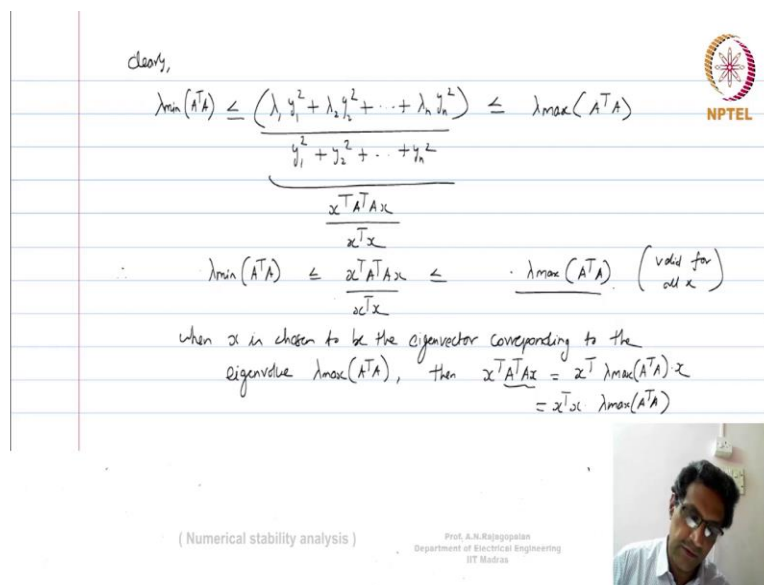 clearly,
λmin(AᵀA) ≤ (λ₁y₁² + λ₂y₂² + ... + λₙyₙ²) ≤ λmax(AᵀA)
y₁² + y₂² + .. + yₙ²
xᵀAᵀAx
xᵀx
∴ λmin(AᵀA) ≤ xᵀAᵀAx ≤ λmax(AᵀA). (valid for all x)
xᵀx
when x is chosen to be the eigenvector corresponding to the
eigenvalue λmax(AᵀA), then xᵀAᵀAx = xᵀ λmax(AᵀA)·x
= xᵀx · λmax(AᵀA)
NPTEL
( Numerical stability analysis )
Prof. A.N.Rajagopalan
Department of Electrical Engineering
IIT Madras